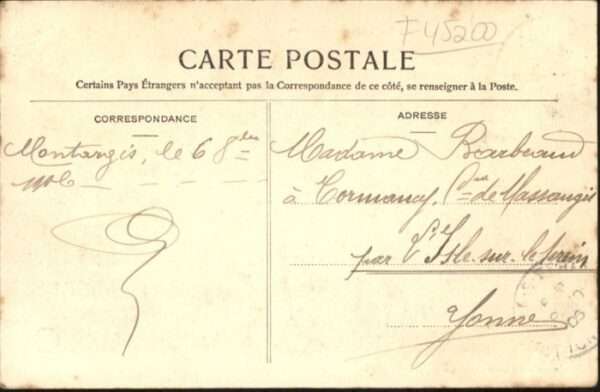 F45200
CARTE POSTALE
Certains Pays Étrangers n'acceptent pas la Correspondance de ce côté, se renseigner à la Poste.
CORRESPONDANCE
Montargis, le 6 8bre
ADRESSE
Madame Barbeaud
à Cormancy, Cne de Massangis
par l'Isle-sur-le-Serein
Yonne